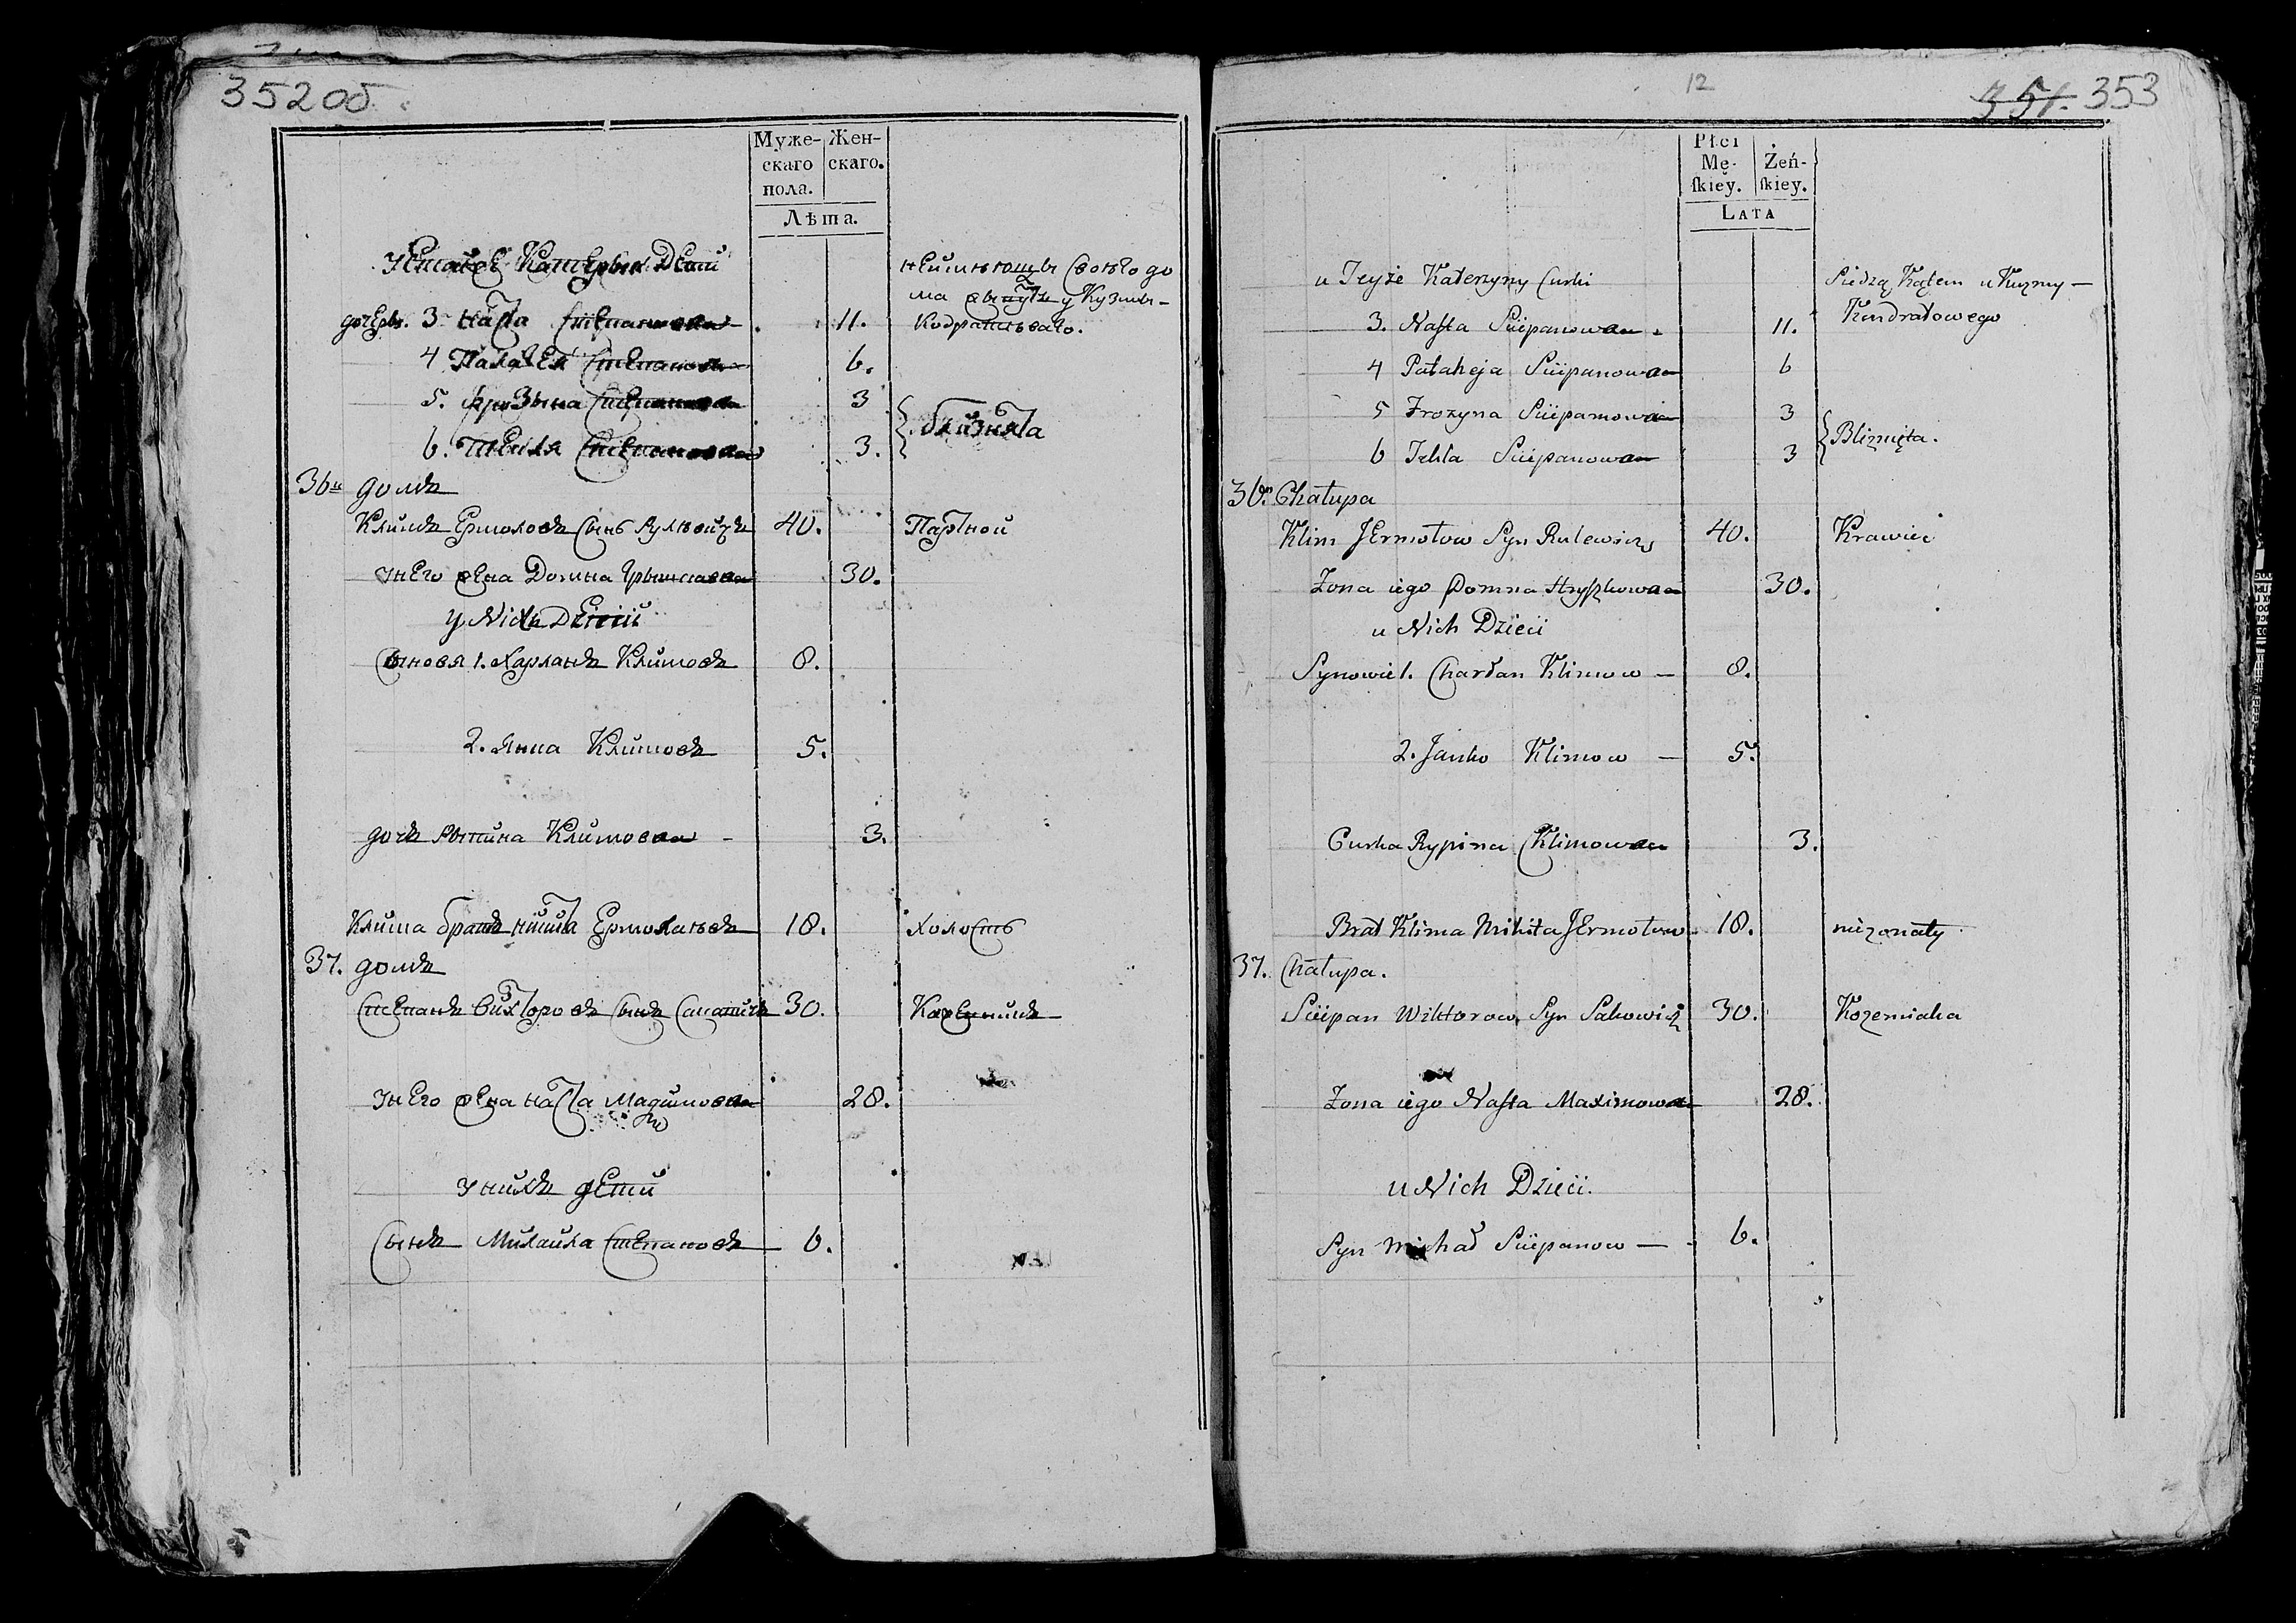 352об.
Муже- Жен-
скаго скаго.
пола.
Лѣта.
У Его Катерыны Дети
неимеющы своего до
ма живутъ у Кузмы
Кодратьваго.
дочеры. 3 Наста Степановна 11.
4 Палагея Степановна 6.
5. Фрозына Степановна 3
близнята
6. Текля Степановна 3.
36й домъ
Климъ Ермоловъ сынъ Рулевичъ 40. Партной
У него жена Домна Грышкова 30.
У Nихъ Дети
Сыновя 1. Харланъ Климовъ 8.
2. Янка Климовъ 5.
дочъ Рыпина Климовна 3.
Клима братъ Никита Ермолаевъ 18. холостъ
37. домъ
Степанъ Викторовъ сынъ 30. Кажемяка
У него жена Наста Максимовна 28.
У нихъ дети
Сынъ Михайла Степановъ 6.
12
351. 353
Płci
Mę- Żeń-
skiey. skiey.
LATA
u Teyże Katerzyny Curki
Siedzą Kątem u Kuzmy —
Kondratowego
3. Nasta Sciepanowna 11.
4 Pałaheja Sciepanowna 6
5 Frozyna Sciepanowna 3
Bliznięta.
6 Tekla Sciepanowna 3
36. Chałupa
Klim JErmołow Syn Rulewicz 40. Krawiec
Żona iego Domna Hryszkowna 30.
u Nich Dzieci
Synowie 1. Charłan Klimow — 8.
2. Janko Klimow — 5.
Curka Rypina Klimowna 3.
Brat Klima Mikita JErmołow 18. nieżonaty
37. Chałupa.
Sciepan Wiktorow Syn Sakowicz 30. Kożemiaka
Żona iego Nasta Maximowna 28.
u Nich Dzieci.
Syn Michał Sciepanow — 6.